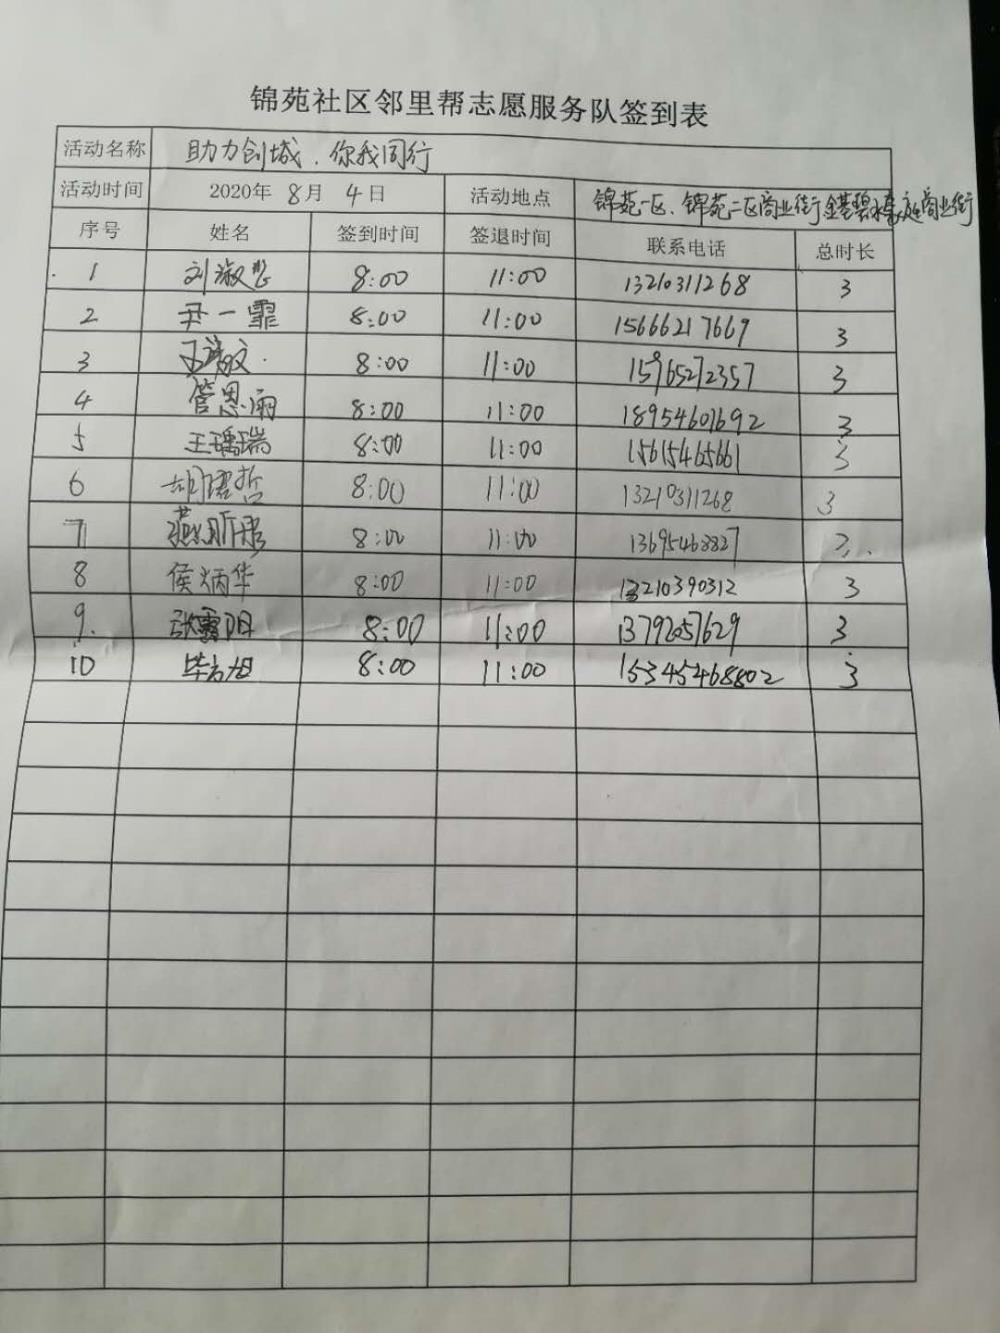 锦苑社区邻里帮志愿服务队签到表
活动名称 助力创城、你我同行
活动时间 2020年 8月 4日 活动地点 锦苑一区、锦苑二区商业街、金基碧水豪庭商业街
序号 姓名 签到时间 签退时间 联系电话 总时长
1 刘淑 8:00 11:00 13210311268 3
2 尹一霏 8:00 11:00 15666217669 3
3 8:00 11:00 15965272357 3
4 管恩雨 8:00 11:00 18954601692 3
5 王瑀瑞 8:00 11:00 15615465661 3
6 胡珺哲 8:00 11:00 13210311268 3
7 燕 8:00 11:00 13695468827 3
8 侯炳华 8:00 11:00 13210390312 3
9. 张露阳 8:00 11:00 13792057629 3
10 毕方旭 8:00 11:00 15345468802 3